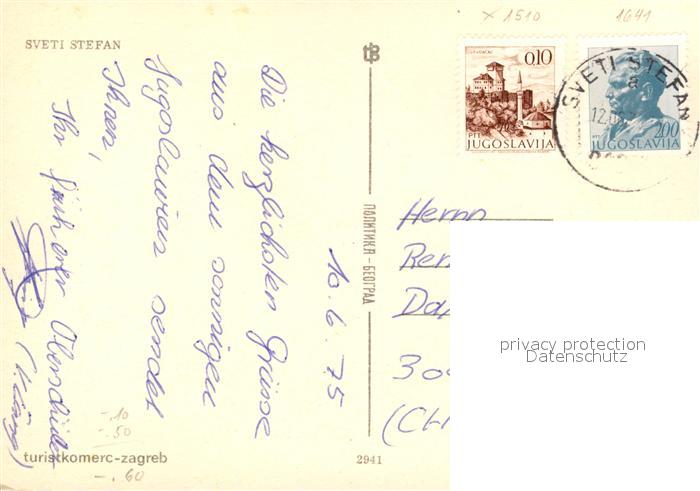 x 1510
1641
SVETI STEFAN
0,10
PTT
JUGOSLAVIJA
2,00
PTT
JUGOSLAVIJA
SVETI STEFAN
a
12.
10.6.75
Die herzlichsten Grüsse
aus dem sonnigen
Jugoslawien sendet
Ihnen,
Ihr früherer Oberschüler
ПОЛИТИКА - БЕОГРАД
Herrn
Ren
Dap
30
(CH
privacy protection
Datenschutz
-.10
-.50
-.60
turistkomerc-zagreb
2941